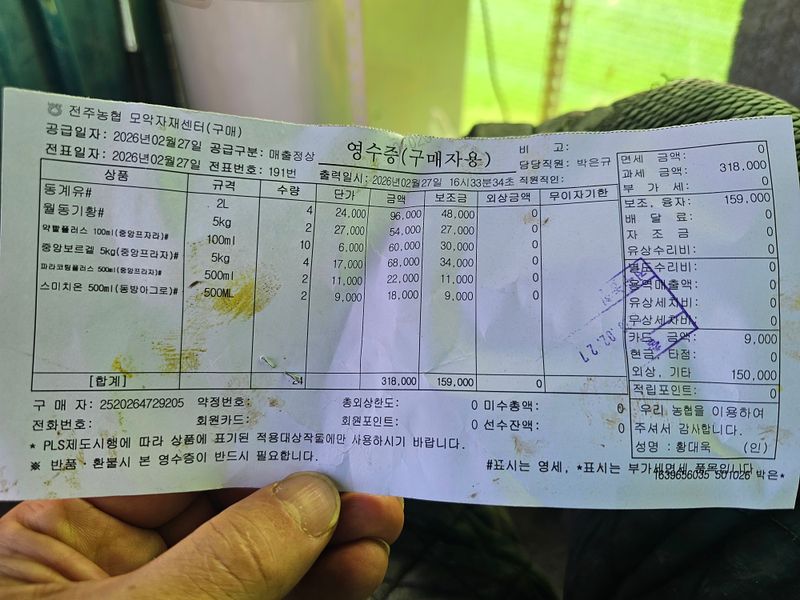 전주농협 모악자재센터(구매)
공급일자: 2026년02월27일 공급구분: 매출정상
영수증(구매자용)
비 고:
전표일자: 2026년02월27일 전표번호: 191번
출력일시: 2026년02월27일 16시33분34초
담당직원: 박은규
직원직인:
상품 규격 수량 단가 금액 보조금 외상금액 무이자기한
동계유# 2L 4 24,000 96,000 48,000 0
월동기황# 5kg 2 27,000 54,000 27,000 0
약짤플러스 100ml(중앙프자라)# 100ml 10 6,000 60,000 30,000 0
중앙보르겔 5kg(중앙프라자)# 5kg 4 17,000 68,000 34,000 0
파라코팅플러스 500ml(중앙프라자)# 500ml 2 11,000 22,000 11,000 0
스미치온 500ml(동방아그로)# 500ML 2 9,000 18,000 9,000 0
[합계] 24 318,000 159,000 0
면세 금액: 0
과세 금액: 318,000
부 가 세: 0
보조, 융자: 159,000
배 달 료: 0
자 조 금 0
유상수리비: 0
별도수리비: 0
용역매출액: 0
유상세차비: 0
무상세차비: 0
카드 금액: 9,000
현금, 타점: 0
외상, 기타 150,000
적립포인트: 0
우리 농협을 이용하여
주셔서 감사합니다.
성명 : 황대욱 (인)
구 매 자: 2520264729205 약정번호: 총외상한도: 0 미수총액: 0
전화번호: 회원카드: 회원포인트: 0 선수잔액: 0
* PLS제도시행에 따라 상품에 표기된 적용대상작물에만 사용하시기 바랍니다.
※ 반품·환불시 본 영수증이 반드시 필요합니다.
#표시는 영세, *표시는 부가세면세 품목입니다
1639656035 501026 박은*